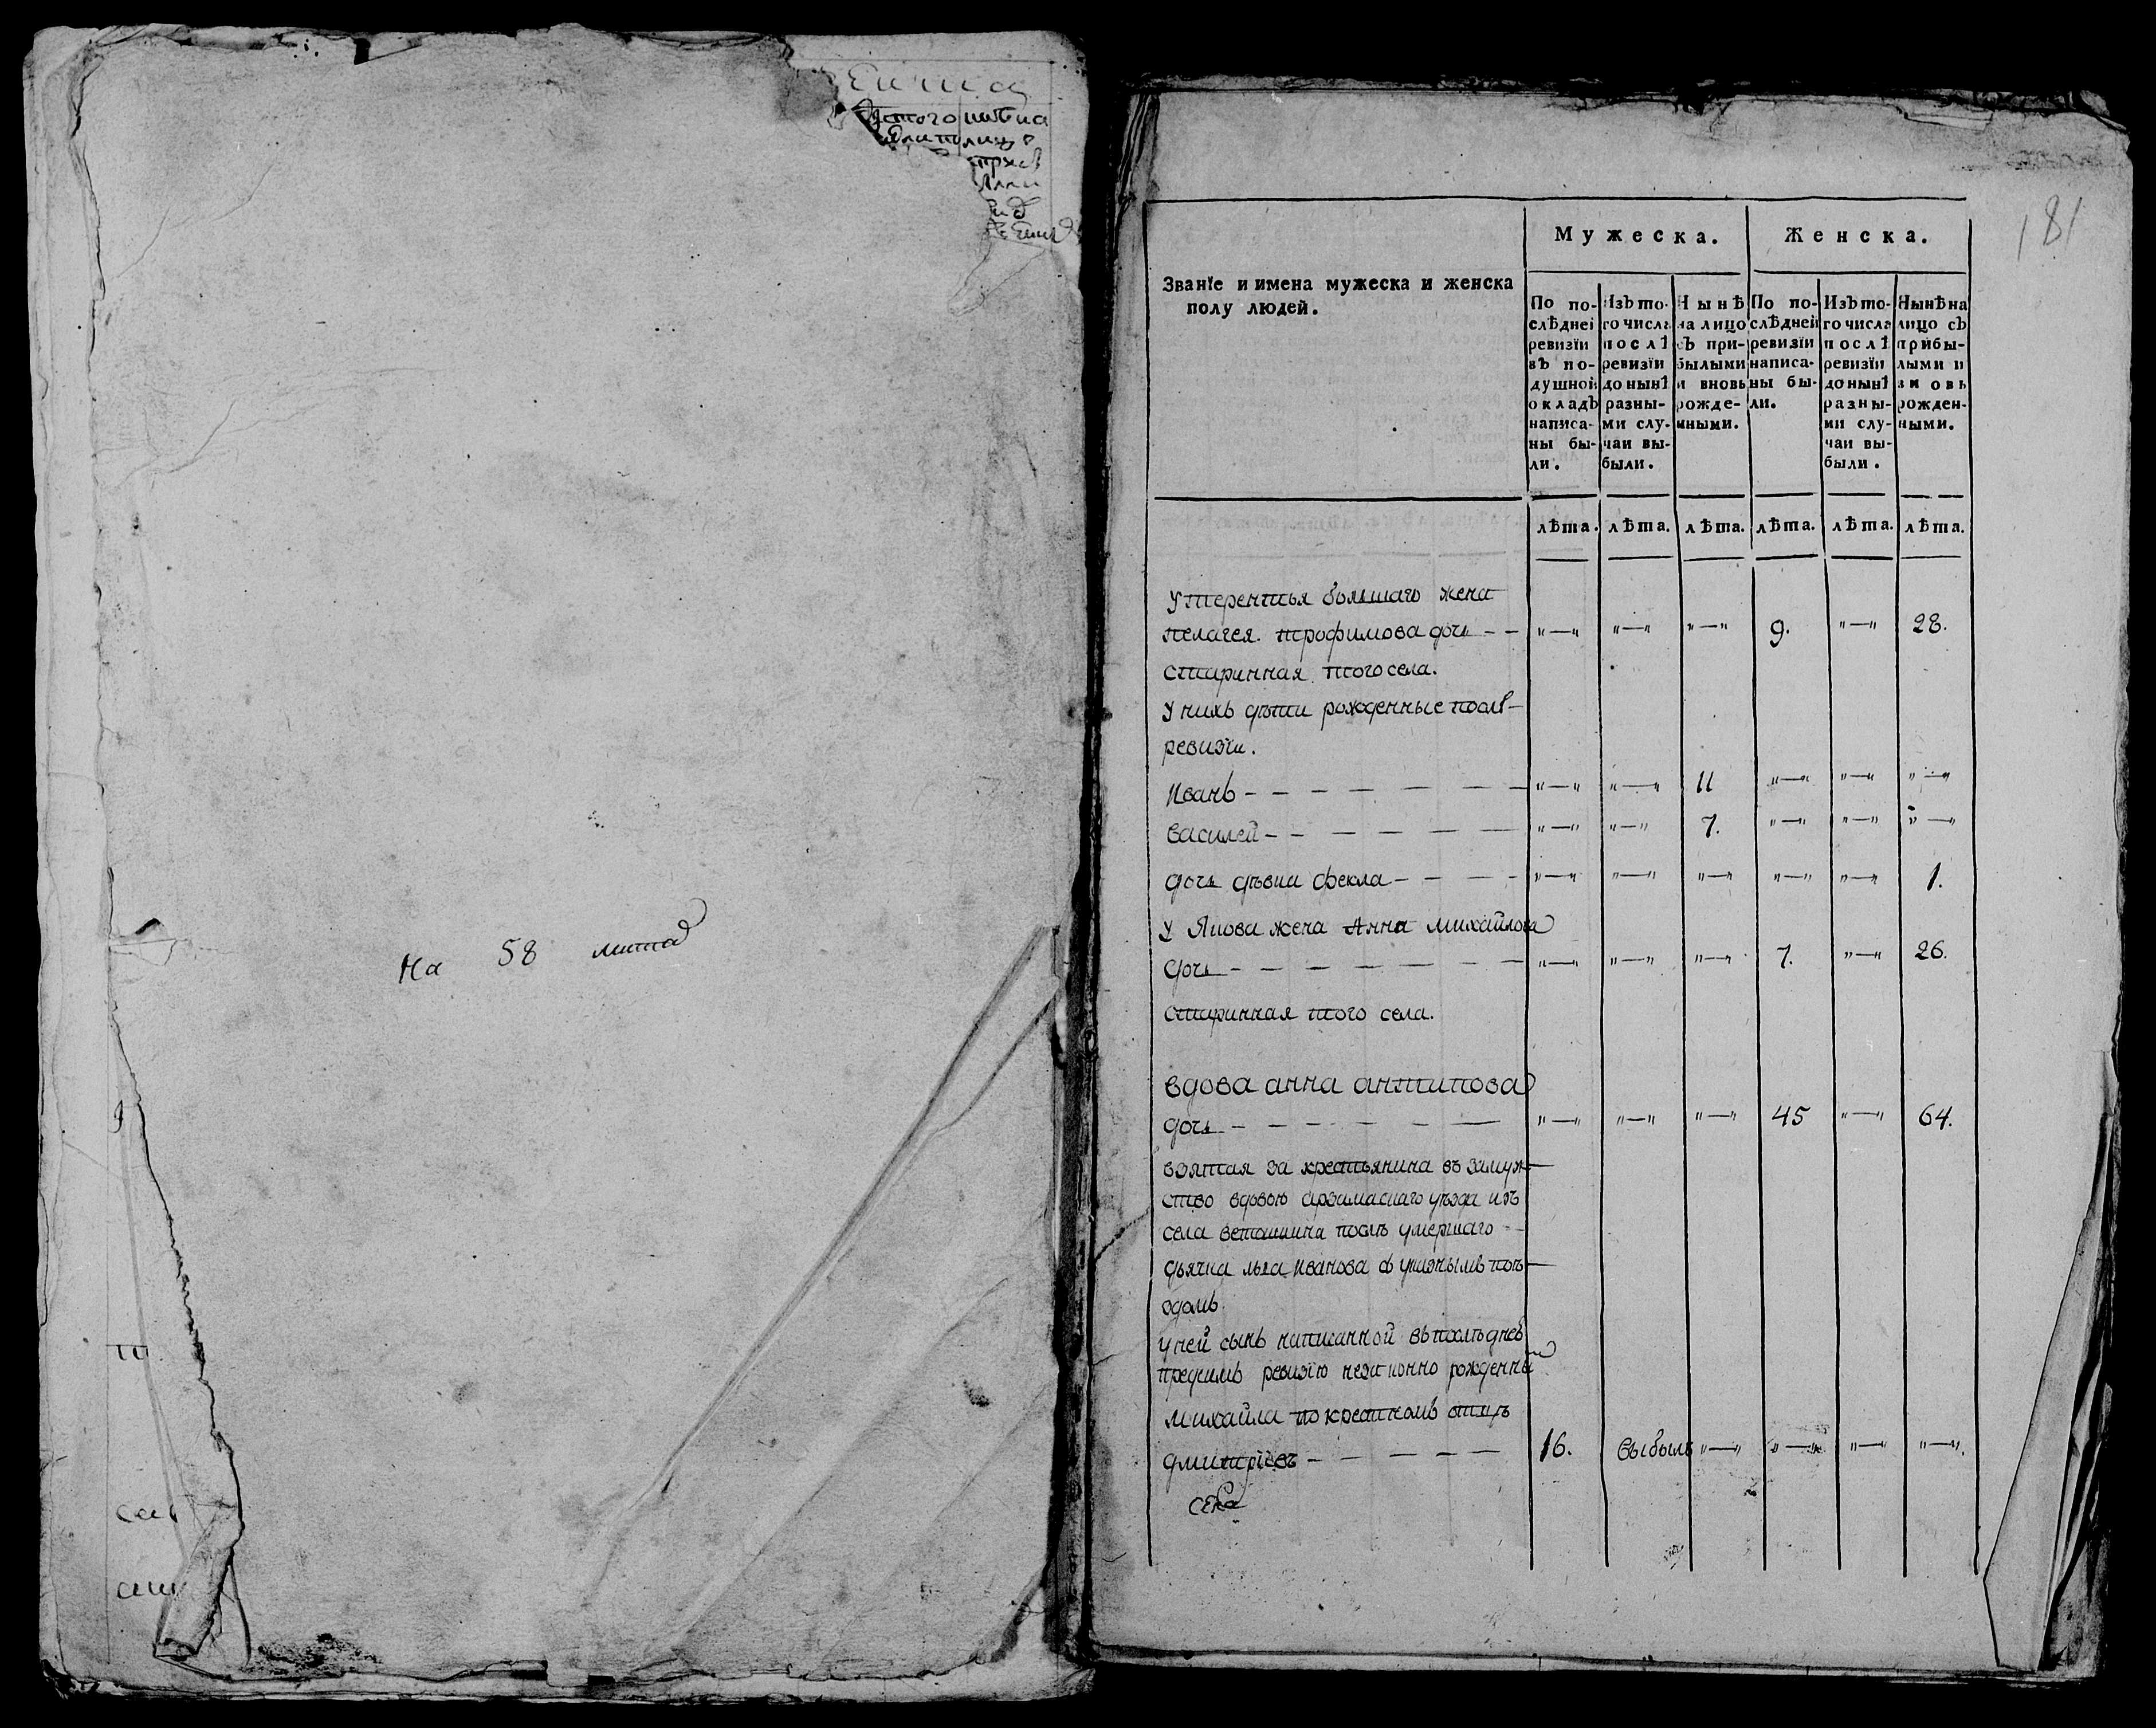 На 58 листа
181
Званїе и имена мужеска и женска
полу людей.
Мужеска.
Женска.
По по-
слѣдней
ревизїи
въ по-
душной
окладъ
написа-
ны бы-
ли.
Изъ то-
го числа
послѣ
ревизїи
до нынѣ
разны-
ми слу-
чаи вы-
были.
Нынѣ
на лицо
съ при-
былыми
и вновь
рожде-
нными.
По по-
слѣдней
ревизїи
написа-
ны бы-
ли.
Изъ то-
го числа
послѣ
ревизїи
до нынѣ
разны-
ми слу-
чаи вы-
были.
Нынѣ на
лицо съ
прибы-
лыми и
вновь
рожден-
ными.
лѣта. лѣта. лѣта. лѣта. лѣта. лѣта.
У терентья большаго жена
пелагея трофимова дочь - - "—" "—" "—" 9. "—" 28.
старинная того села.
У нихъ дѣти рожденные послѣ-
ревизїи.
Иванъ - - - - - - - "—" "—" 11 "—" "—" "—"
Василей - - - - - - "—" "—" 7. "—" "—" "—"
дочь дѣвка фекла - - - - "—" "—" "—" "—" "—" 1.
У Якова жена Анна михайлова
дочь - - - - - - - "—" "—" "—" 7. "—" 26.
старинная того села.
вдова анна антипова
дочь - - - - - - "—" "—" "—" 45 "—" 64.
взятая за крестьянина въ замуж-
ство вдовою арзамаскаго уѣзда изъ
села ветошкина послѣ умершаго -
дьячка льва Иванова
У ней сынъ написанной въ последнею
пред симъ ревизїю незаконно рожденны
михайла по крестномъ отцѣ
дмитрїевъ - - - - - 16. выбылъ "—" "—" "—" "—".